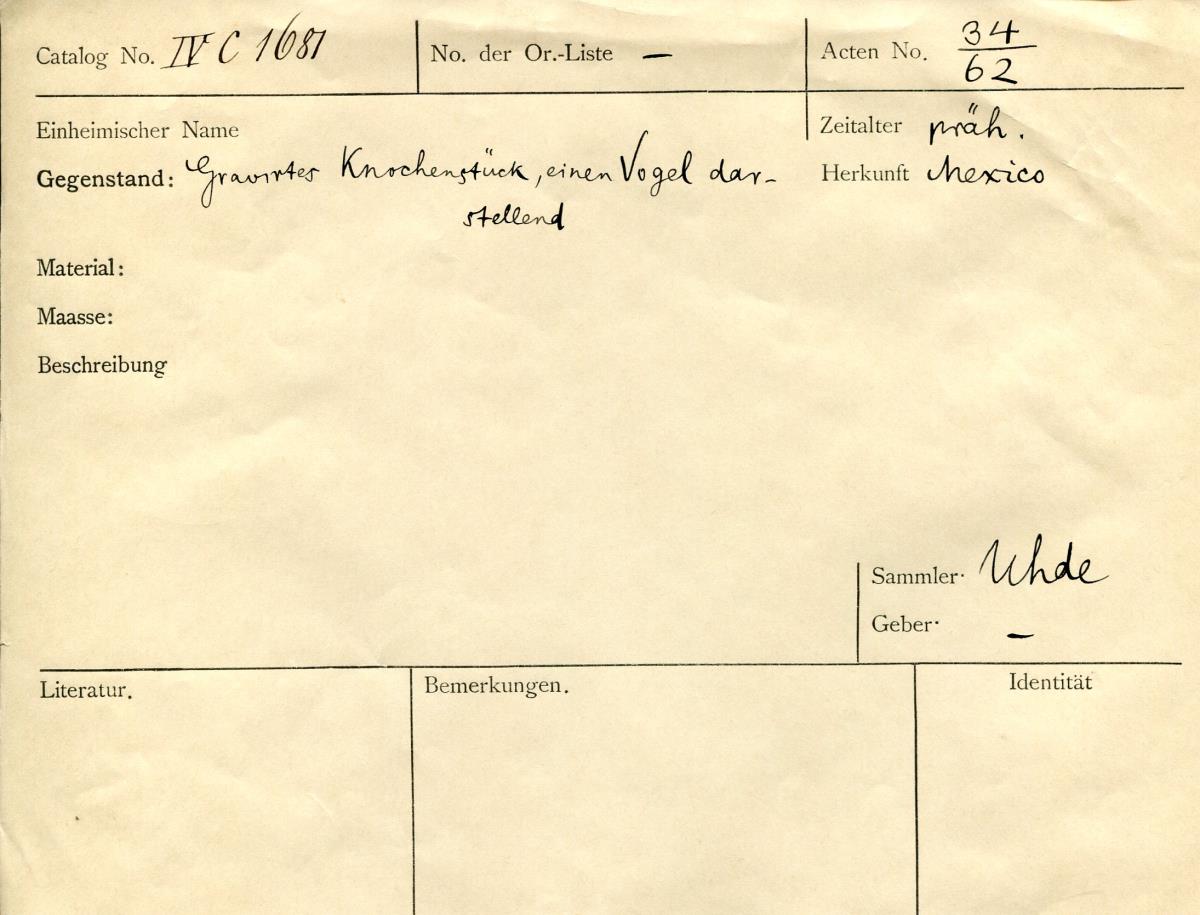 Catalog No. IV C 1681 No. der Or.-Liste — Acten No. 34/62
Einheimischer Name Zeitalter präh.
Gegenstand: Gravirtes Knochenstück, einen Vogel dar- Herkunft Mexico
stellend
Material:
Maasse:
Beschreibung
Sammler. Uhde
Geber. —
Literatur. Bemerkungen. Identität